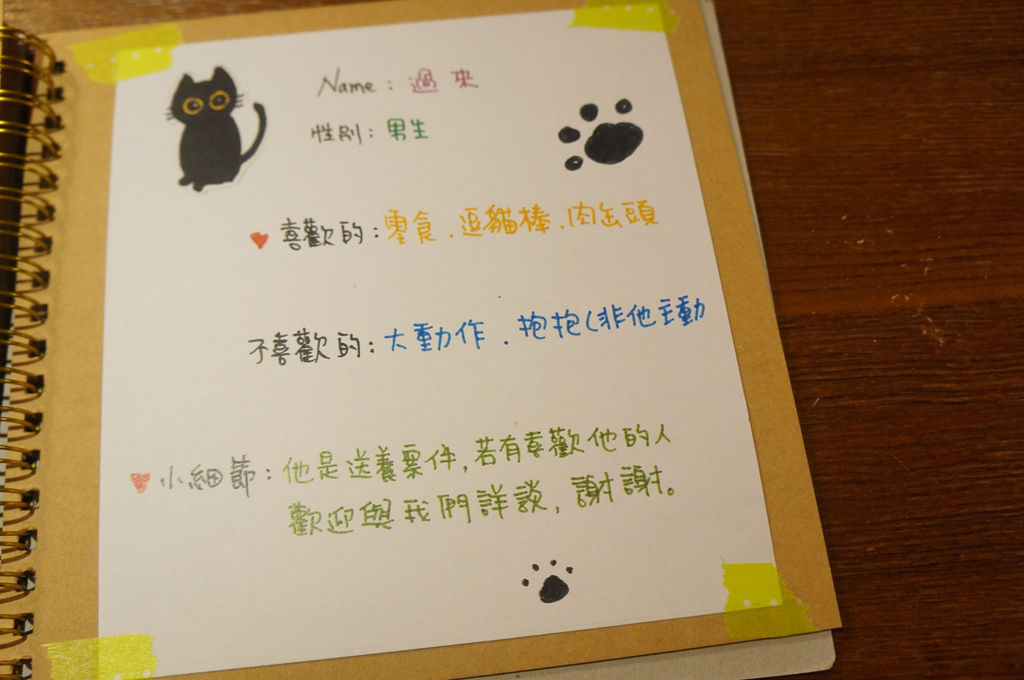 Name：過來
性別：男生
喜歡的：零食、逗貓棒、肉缶頭
不喜歡的：大動作、抱抱(非他主動
小細節：他是送養案件，若有喜歡他的人
歡迎與我們詳談，謝謝。